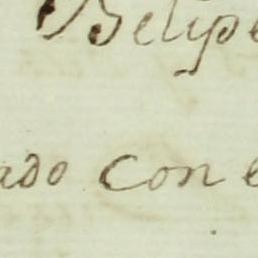 Felipe
ado con e